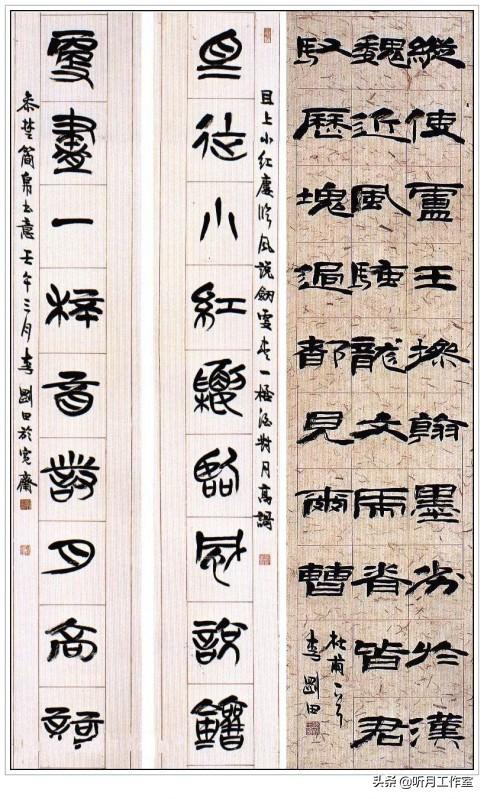 縱使盧王操翰墨劣於漢
魏近風騷龍文虎脊皆君
馭歷塊過都見爾曹
杜甫
李剛田
且上小紅樓臨風說劍
且上小紅樓臨風說劍更盡一杯酒對月高謌
更盡一杯酒對月高謌
楚簡帛書意壬午三月李剛田於寬齋
头条 @听月工作室